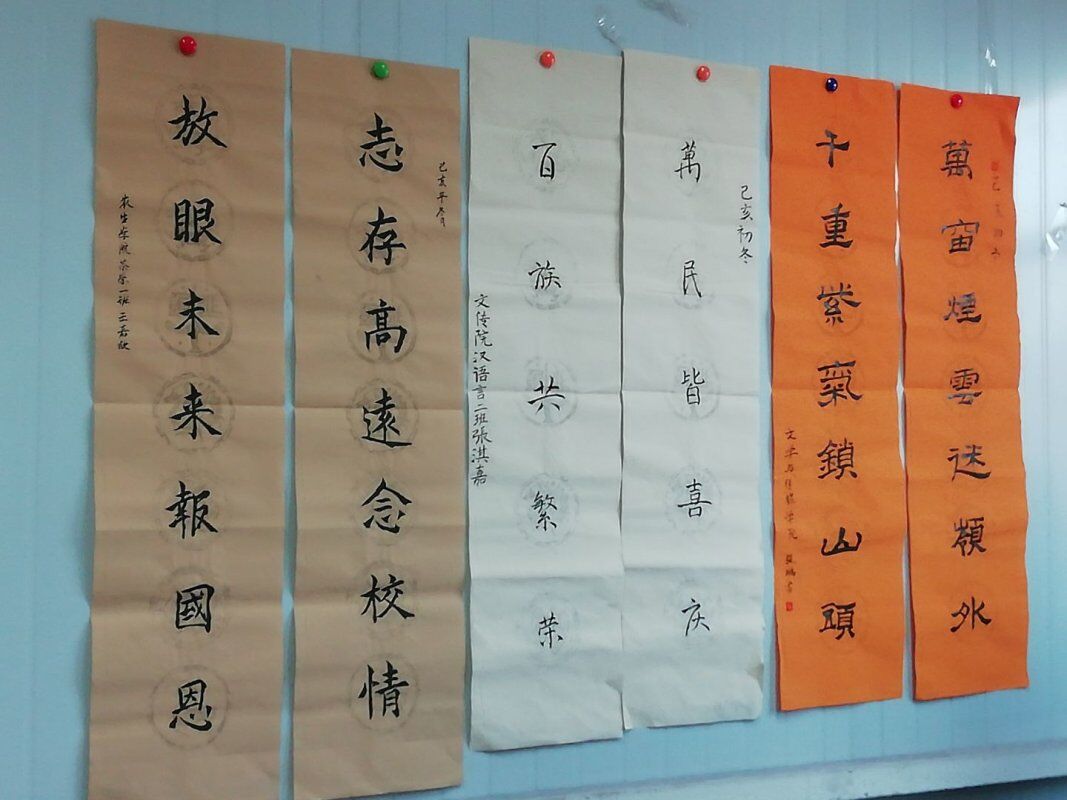 己亥初冬
萬宙煙雲迷嶺外
千重紫氣鎖山頭
文学与传媒学院
己亥初冬
萬民皆喜庆
百族共繁荣
文传院汉语言二班張淇嘉
己亥年冬月
志存高遠念校情
放眼未来報國恩
一班王